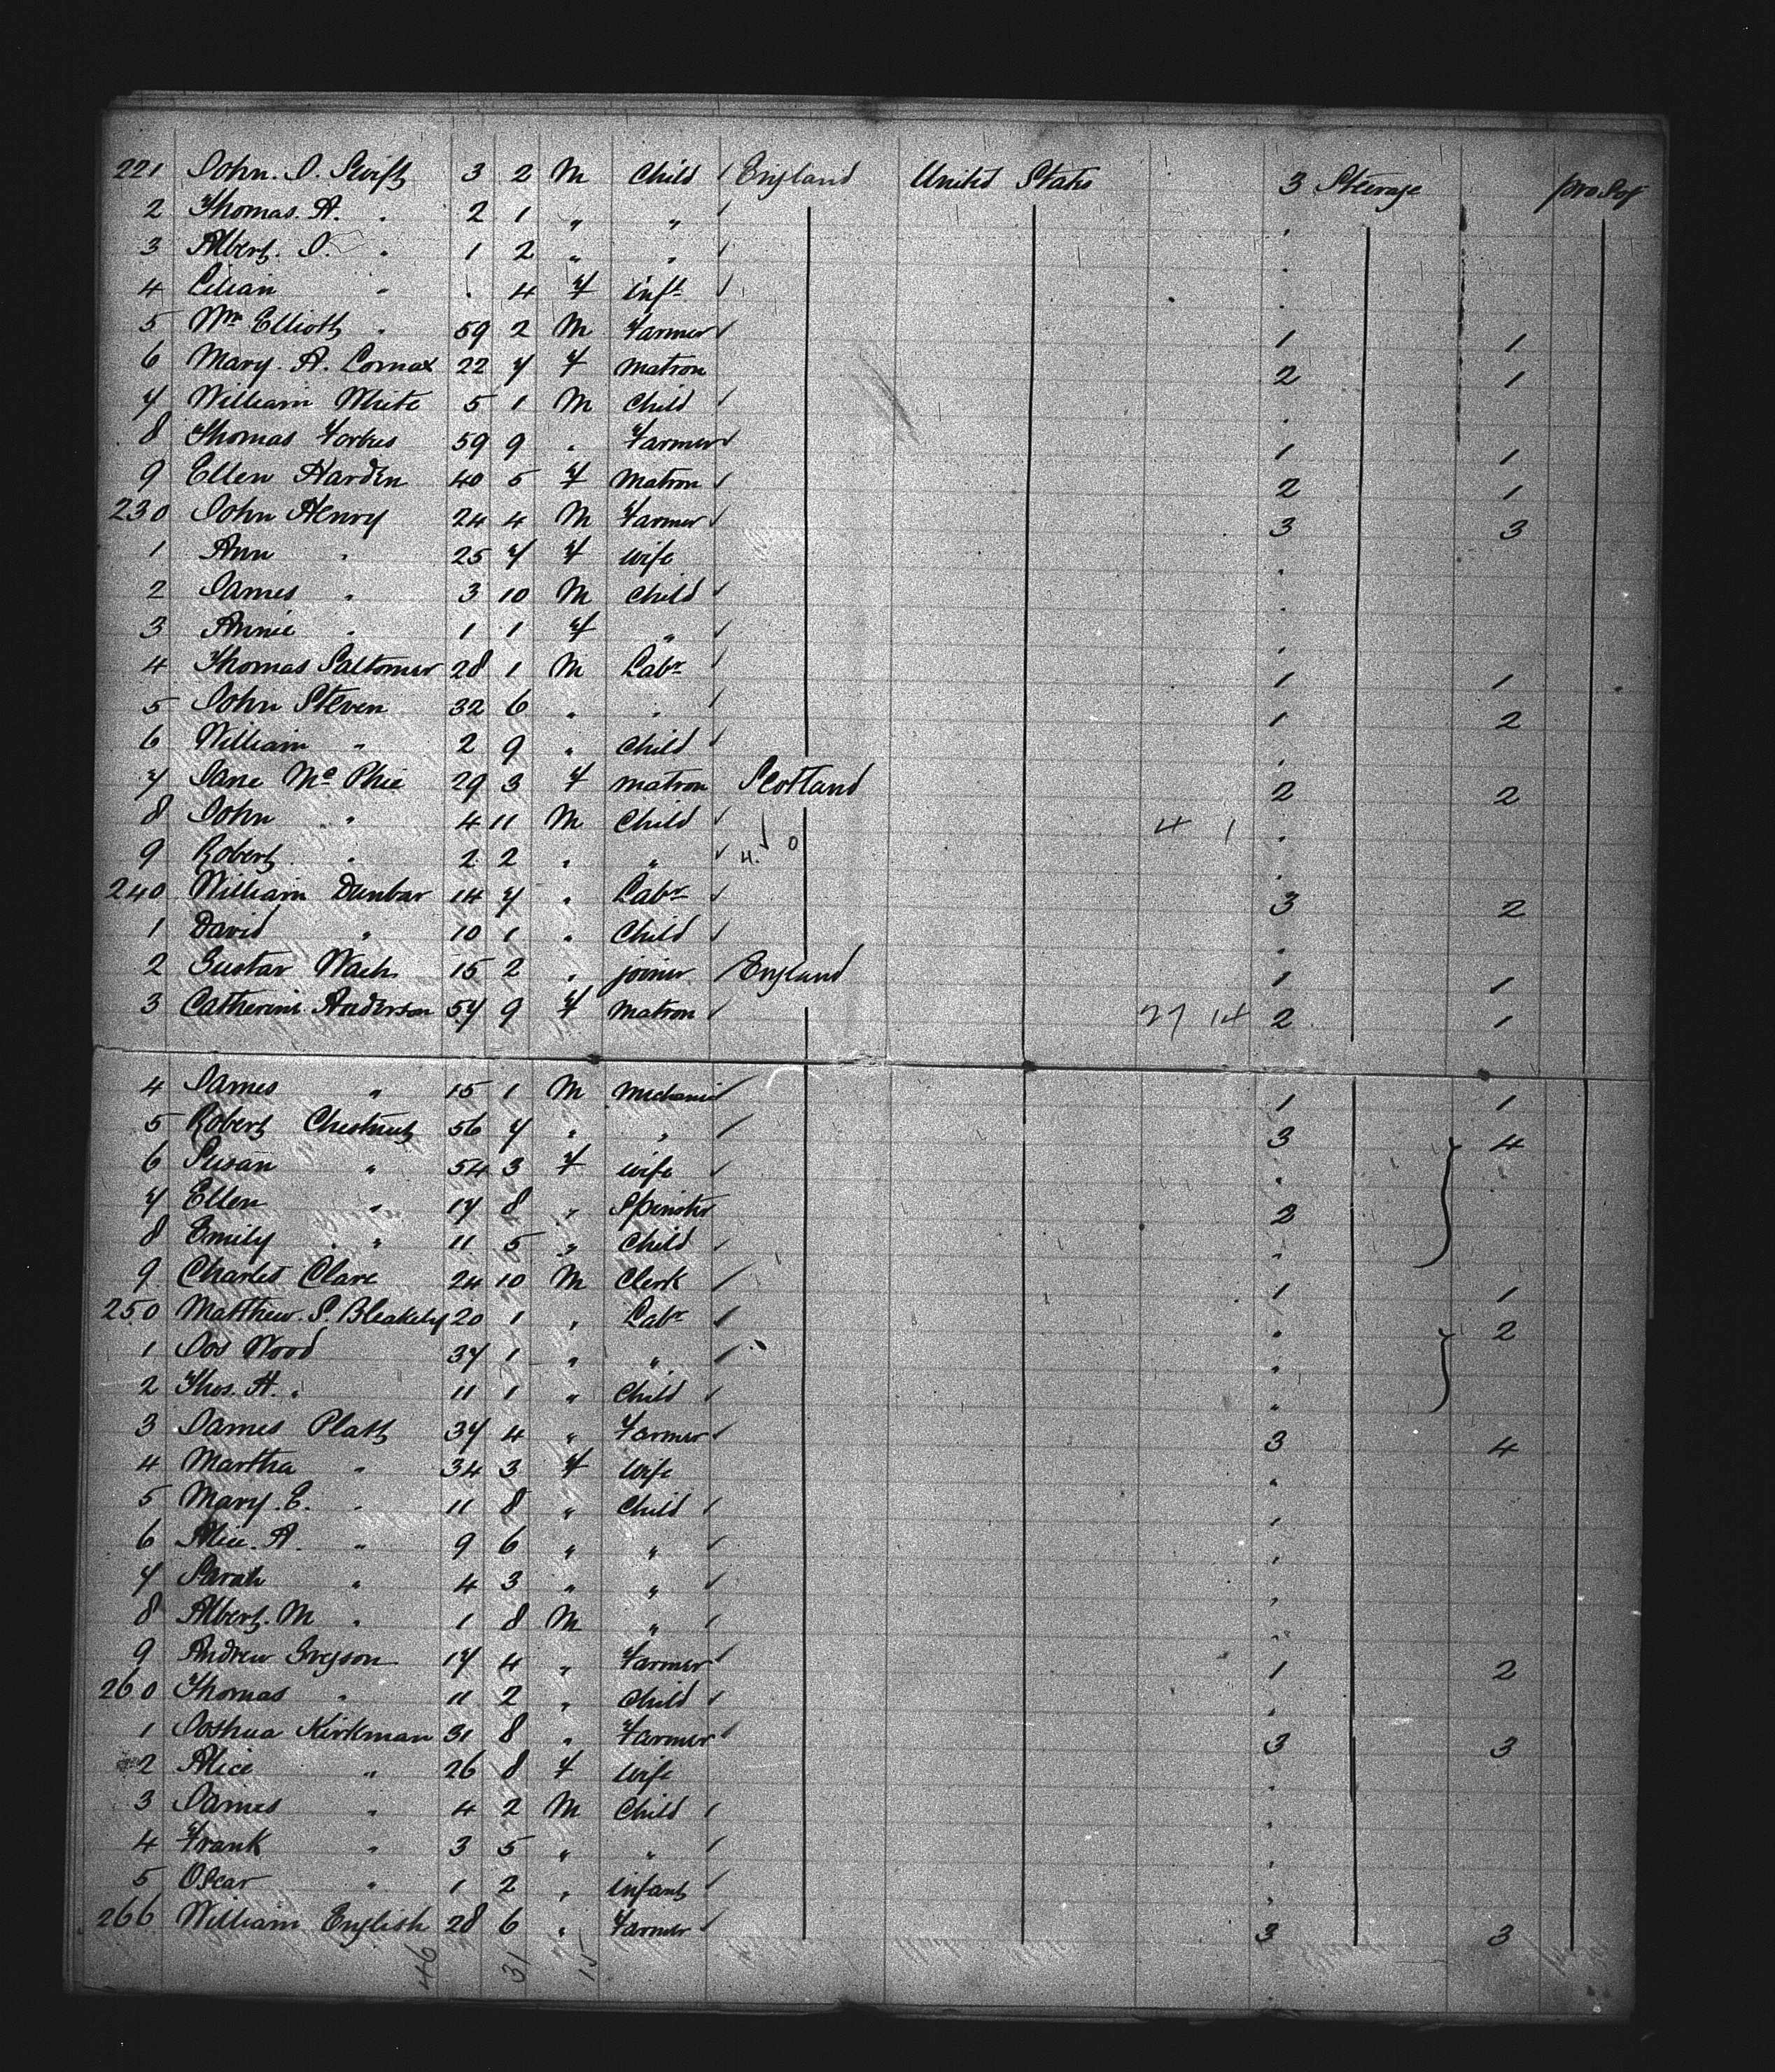 221 John. J. Swift 3 2 M Child ✓ England United States 3 Steerage
2 Thomas. A. " 2 1 " " ✓ "
3 Albert. J. " 1 2 " " ✓ "
4 Lilian " . 4 F Inft ✓ "
5 Wm Elliott " 59 2 M Farmer ✓ 1 1
6 Mary. A. Lomax 22 7 F Matron 2 1
7 William White 5 1 M Child ✓ "
8 Thomas Forbes 59 9 " Farmer ✓ 1 1
9 Ellen Harden 40 5 F Matron ✓ 2 1
230 John Henry 24 4 M Farmer ✓ 3 3
1 Ann " 25 7 F wife "
2 James " 3 10 M Child ✓ "
3 Annie " 1 1 F " ✓ "
4 Thomas Saltomer 28 1 M Labr ✓ 1 1
5 John Steven 32 6 " " ✓ 1 2
6 William " 2 9 " Child ✓ "
7 Jane Mc Phie 29 3 F Matron Scotland 2 2
8 John " 4 11 M Child ✓ 4 1 "
9 Robert " 2 2 " " ✓ 4. 0 "
240 William Dunbar 14 7 " Labr ✓ 3 2
1 David " 10 1 " Child ✓ "
2 Gustav 15 2 " joiner ✓ England 1 1
3 Catherine Anderson 57 9 F Matron ✓ 27 14 2 1
4 James " 15 1 M Mechanic ✓ 1 1
5 Robert Chestnut 56 7 " " ✓ 3 4
6 Susan " 54 3 F wife ✓ "
7 Ellen " 17 8 " Spinster 2
8 Emily " 11 5 " Child ✓ "
9 Charles Clare 24 10 M Clerk ✓ 1 1
250 Matthew. S. Bleakely 20 1 " Labr ✓ " 2
1 Jos Wood 37 1 " " ✓ "
2 Thos. H. " 11 1 " Child ✓ "
3 James Platt 37 4 " Farmer ✓ 3 4
4 Martha " 34 3 F Wife "
5 Mary. E. " 11 8 " Child ✓ "
6 Alice. A. " 9 6 " " ✓ "
7 Sarah " 4 3 " " ✓ "
8 Albert. M " 1 8 M " ✓ "
9 Andrew Gregson 17 4 " Farmer ✓ 1 2
260 Thomas " 11 2 " Child ✓ "
1 Joshua Kirkman 31 8 " Farmer ✓ 3 3
2 Alice " 26 8 F Wife "
3 James " 4 2 M Child ✓ "
4 Frank " 3 5 " " ✓ "
5 Oscar " 1 2 " infant ✓ "
266 William English 28 6 " Farmer ✓ 3 3
46 31 15